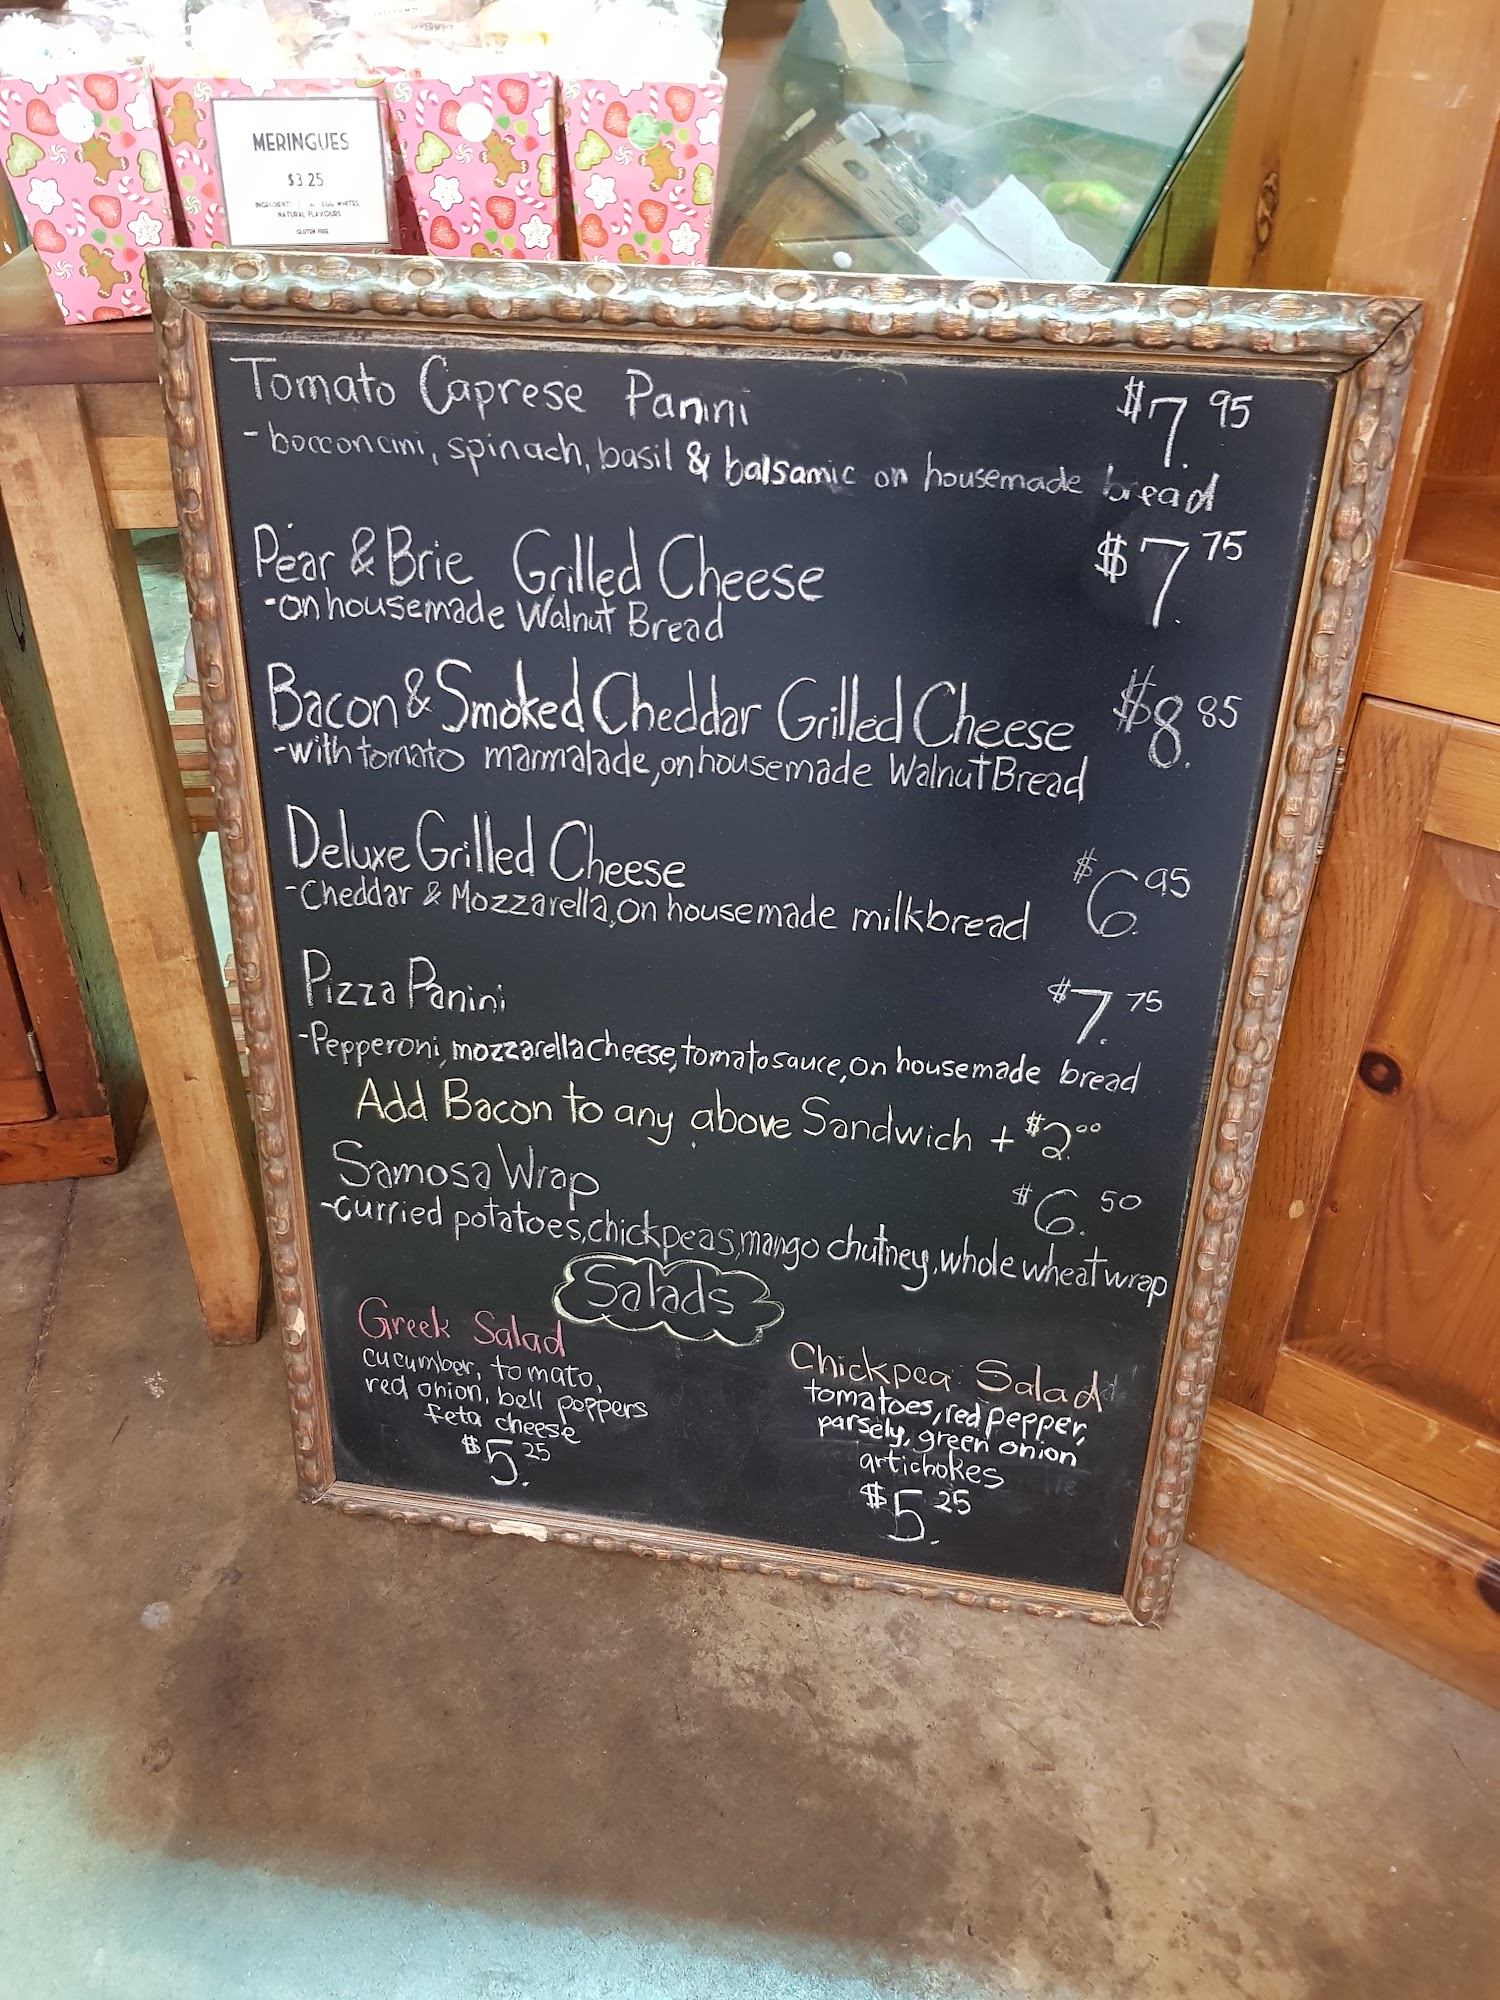 MERINGUES
$3.25
EGG WHITES,
NATURAL FLAVOURS
GLUTEN FREE
Tomato Caprese Panini $7.95
- bocconcini, spinach, basil & balsamic on housemade bread
Pear & Brie Grilled Cheese $7.75
- on housemade Walnut Bread
Bacon & Smoked Cheddar Grilled Cheese $8.85
- with tomato marmalade, on housemade Walnut Bread
Deluxe Grilled Cheese $6.95
- Cheddar & Mozzarella, on housemade milkbread
Pizza Panini $7.75
- Pepperoni, mozzarella cheese, tomato sauce, on housemade bread
Add Bacon to any above Sandwich + $2.00
Samosa Wrap $6.50
- curried potatoes, chickpeas, mango chutney, whole wheat wrap
Salads
Greek Salad
cucumber, tomato,
red onion, bell peppers
feta cheese
$5.25
Chickpea Salad
tomatoes, red pepper,
parsely, green onion
artichokes
$5.25